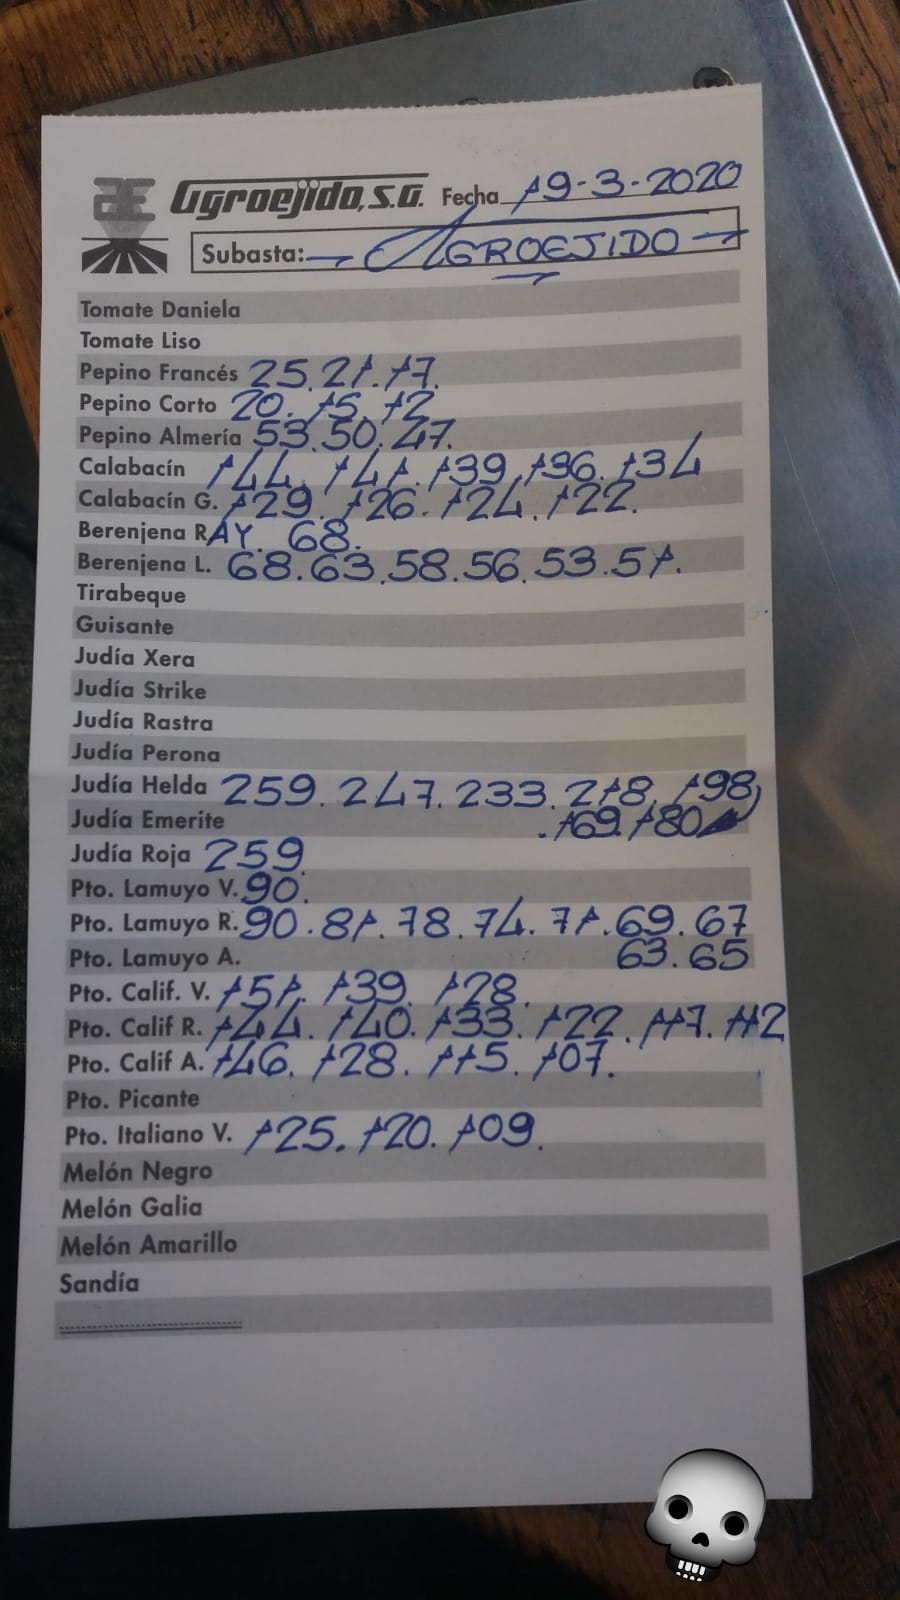 Agroejido, S.A. Fecha 19-3-2020
Subasta: AGROEJIDO
Tomate Daniela
Tomate Liso
Pepino Francés 25. 21. 17.
Pepino Corto 20. 15. 12
Pepino Almería 53. 50. 47.
Calabacín 144. 141. 139. 136. 134
Calabacín G. 129. 126. 124. 122.
Berenjena RAY. 68.
Berenjena L. 68. 63. 58. 56. 53. 51.
Tirabeque
Guisante
Judía Xera
Judía Strike
Judía Rastra
Judía Perona
Judía Helda 259. 247. 233. 218. 198
Judía Emerite . 169. 180
Judía Roja 259.
Pto. Lamuyo V. 90.
Pto. Lamuyo R. 90. 81. 78. 74. 71. 69. 67
Pto. Lamuyo A. 63. 65
Pto. Calif. V. 151. 139. 128.
Pto. Calif R. 144. 140. 133. 122. 117. 112
Pto. Calif A. 146. 128. 115. 107.
Pto. Picante
Pto. Italiano V. 125. 120. 109.
Melón Negro
Melón Galia
Melón Amarillo
Sandía